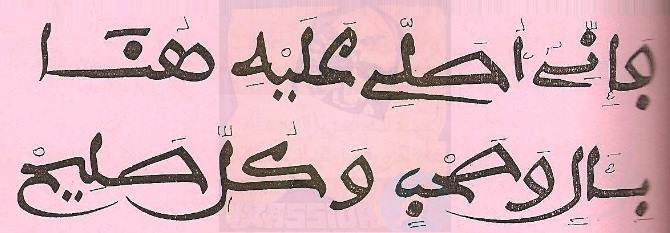 فَإِنِّي أُصَلِّي عَلَيْهِ هُنَا
بِـَالٍ وَصَحْبٍ وَكُلِّ صَلِيحْ